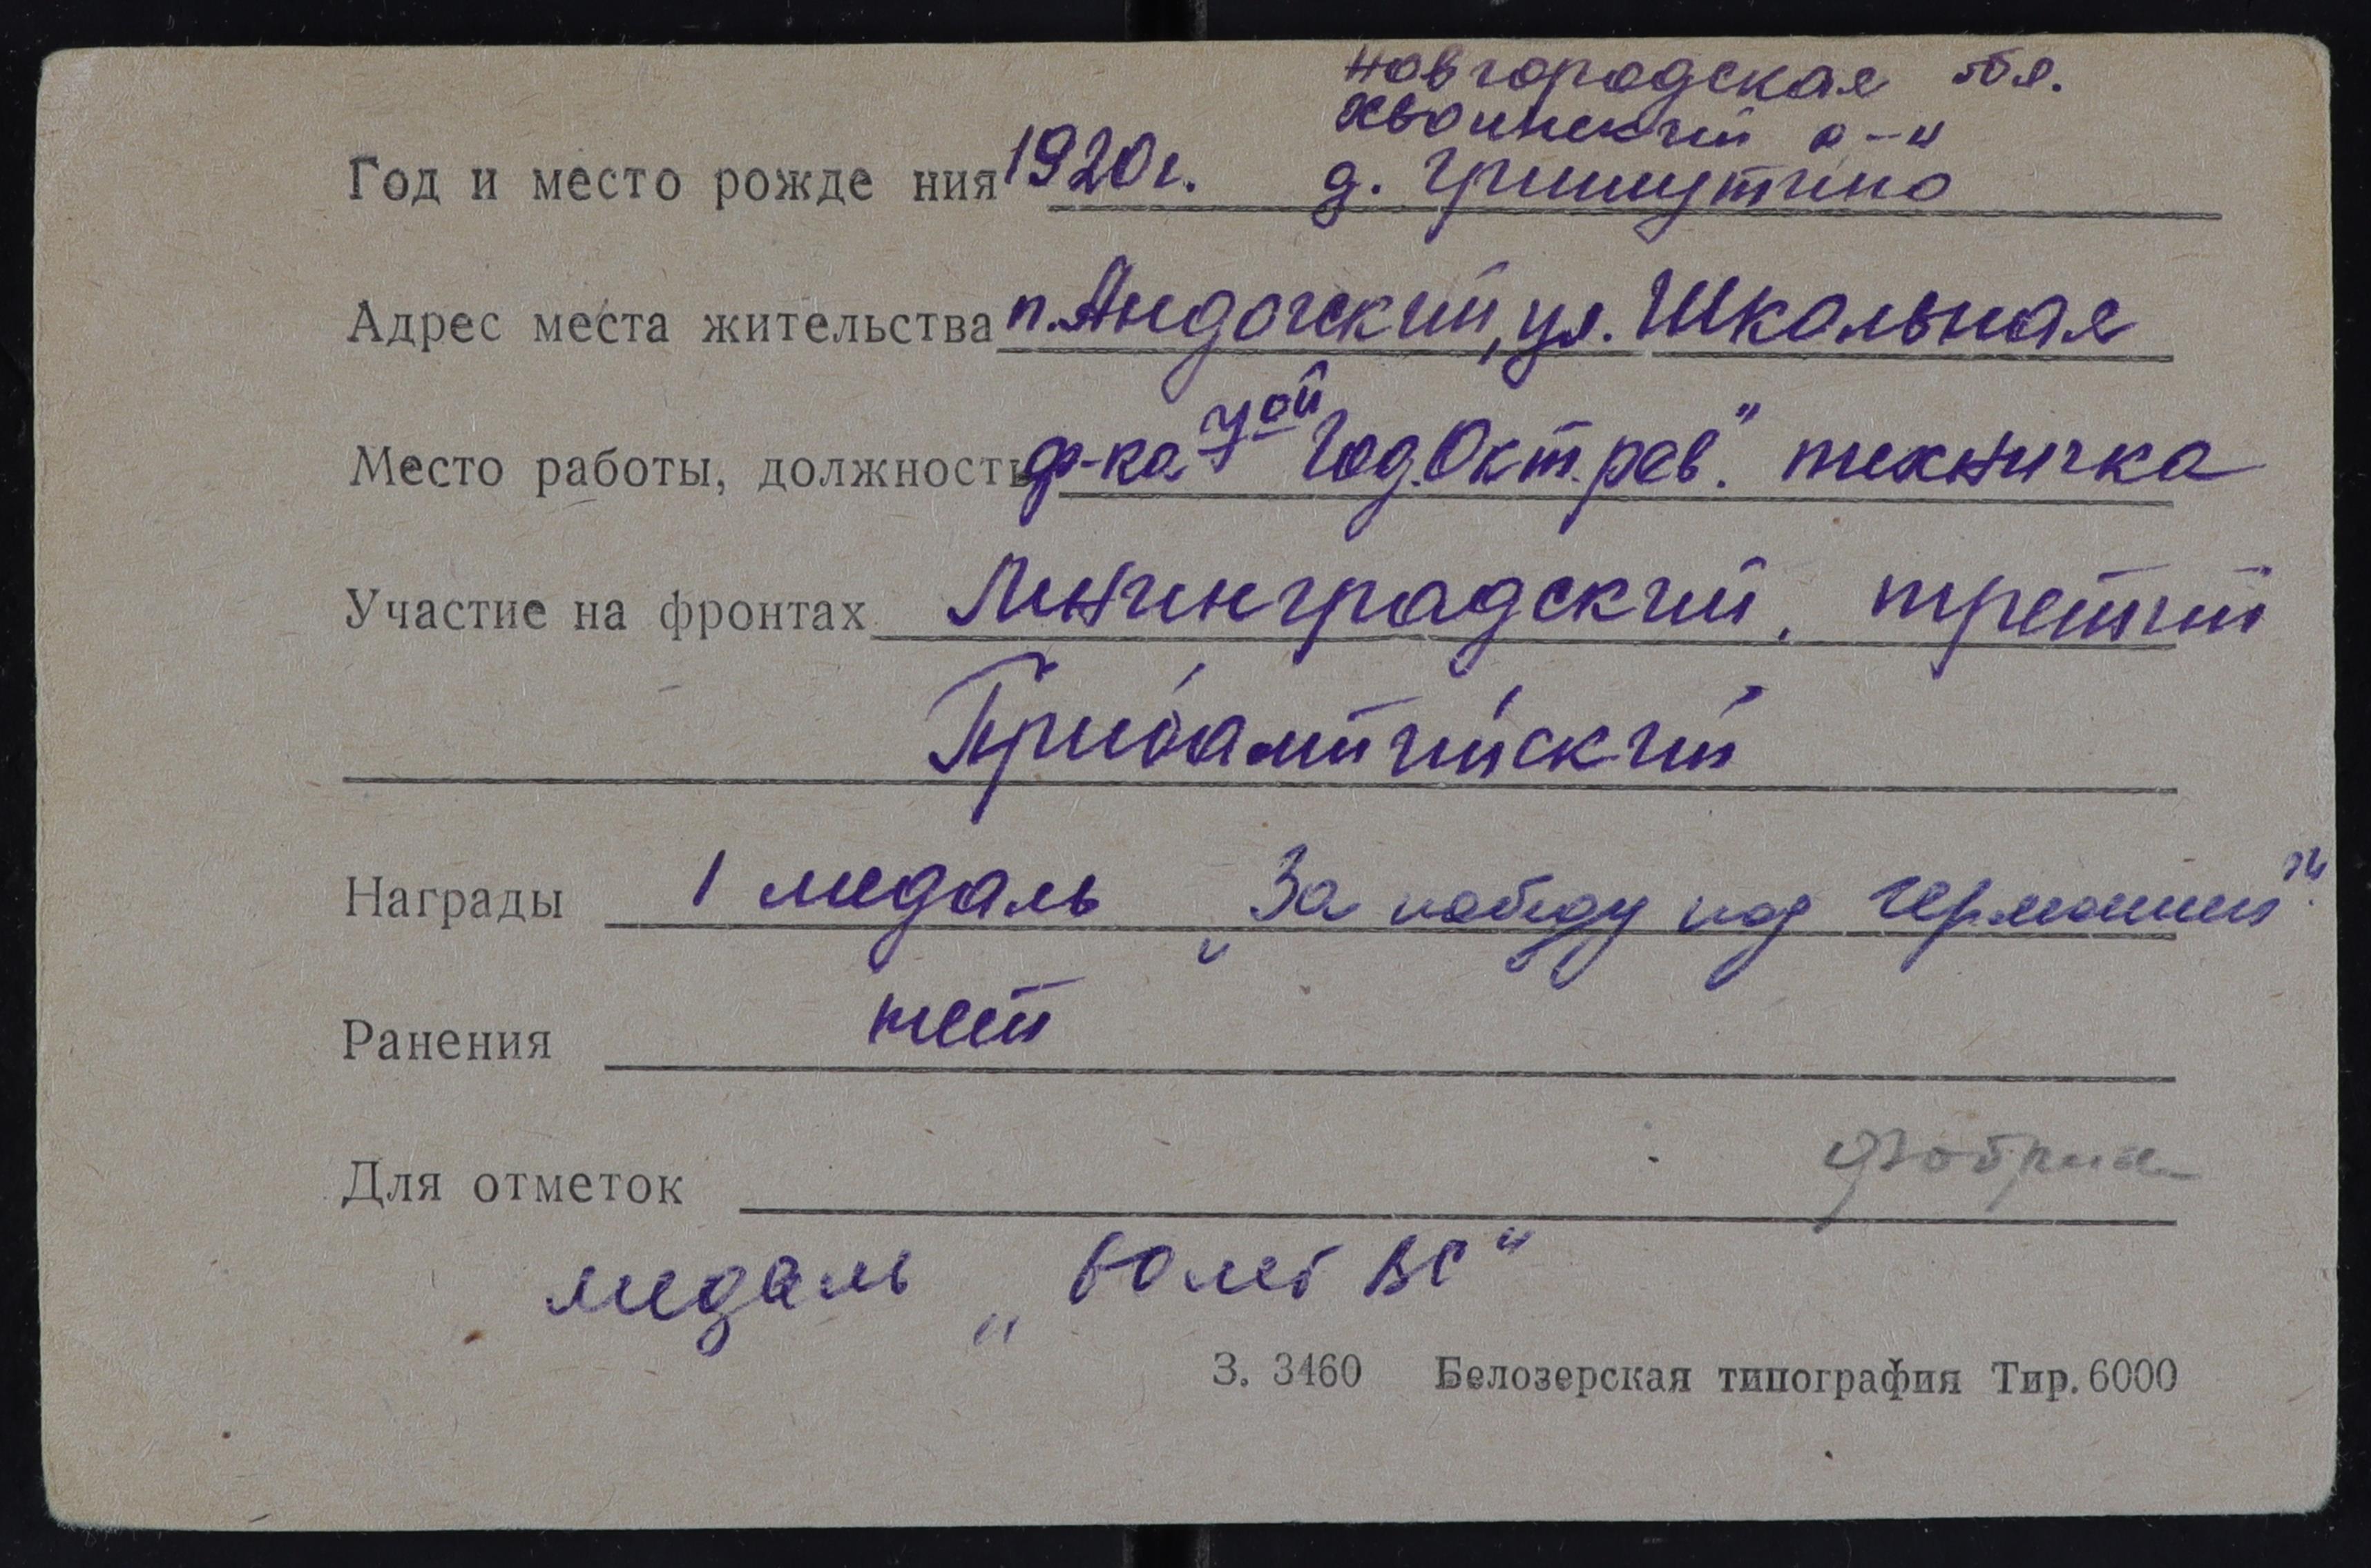 Новгородская обл.
Хвоинский р-н
Год и место рожде ния 1920г. д. Гришутино
Адрес места жительства п. Андогский, ул. Школьная
Место работы, должность ф-ка 7ой Год. Окт. рев." техничка
Участие на фронтах Ленинградский, третий
Прибалтийский
Награды 1 медаль „За победу над Германией".
Ранения нет
Для отметок
медаль „60 лет ВС"
З. 3460 Белозерская типография Тир. 6000